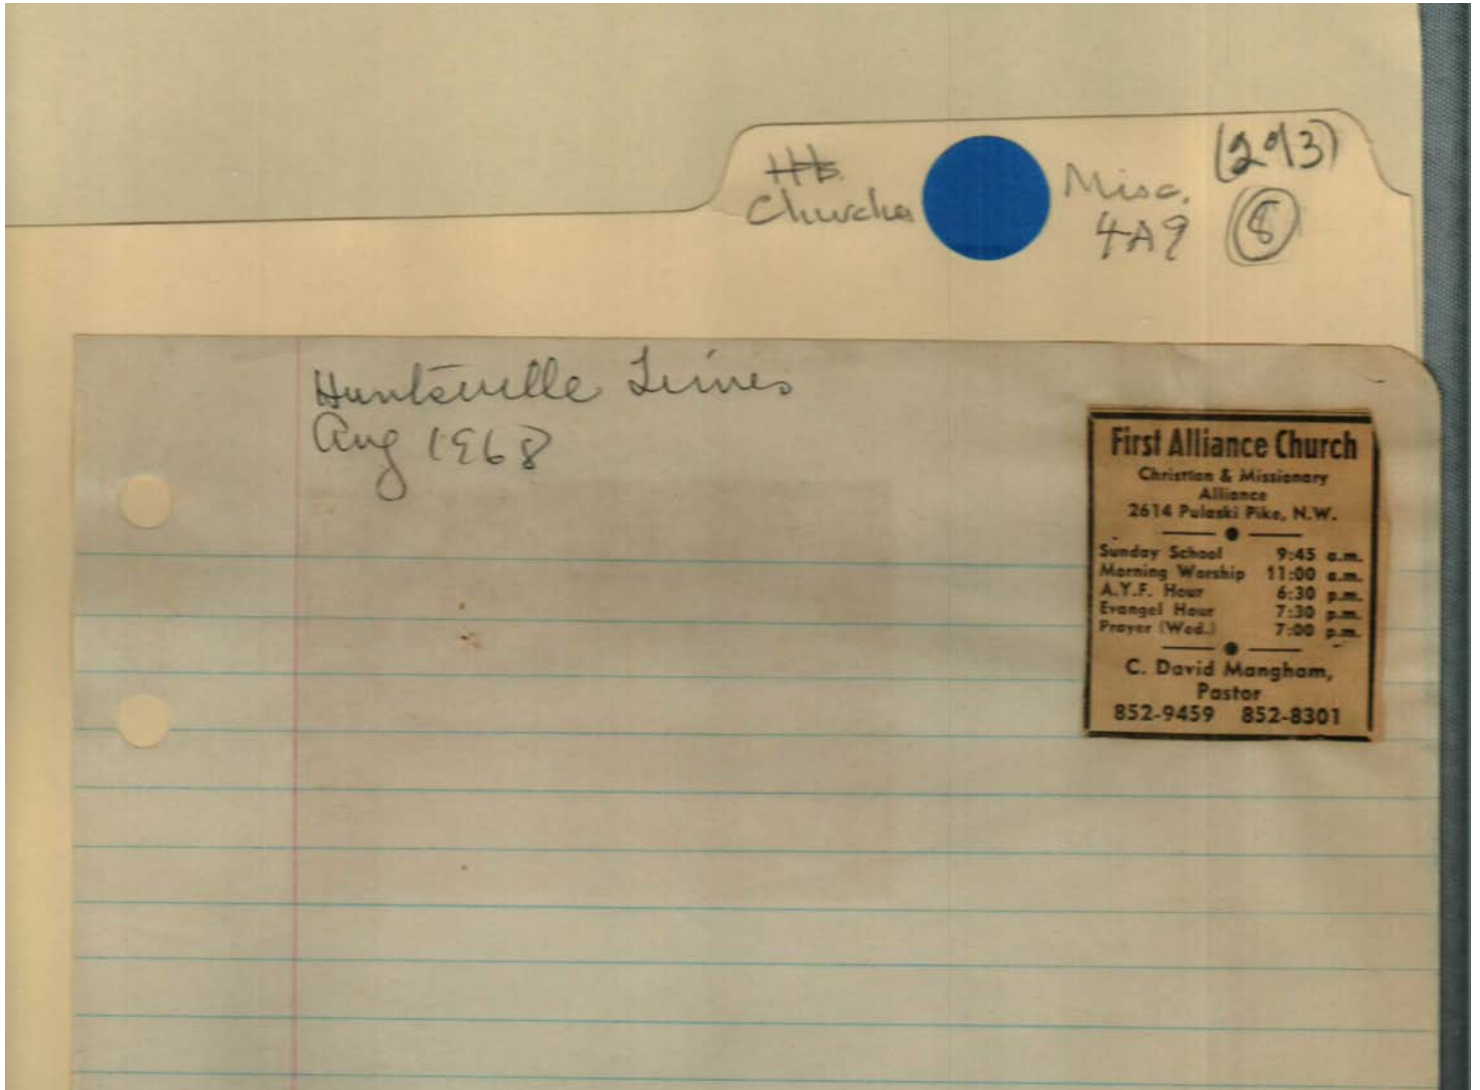 Churches
Misc.
4A9
(293)
8
Huntsville Times
Aug 1968
First Alliance Church
Christian & Missionary
Alliance
2614 Pulaski Pike, N.W.
Sunday School 9:45 a.m.
Morning Worship 11:00 a.m.
A.Y.F. Hour 6:30 p.m.
Evangel Hour 7:30 p.m.
Prayer (Wed.) 7:00 p.m.
C. David Mangham,
Pastor
852-9459 852-8301